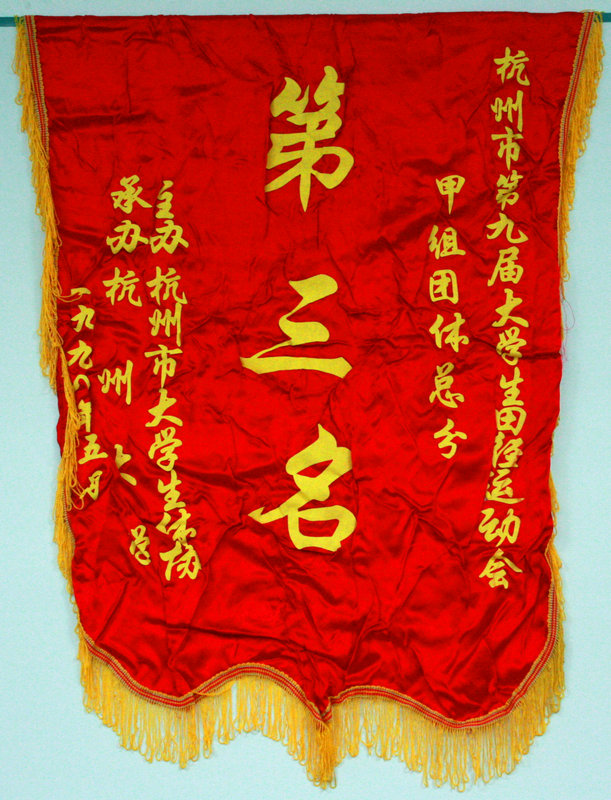 杭州市第九届大学生田径运动会
甲组团体总分
第三名
主办 杭州市大学生体协
承办 杭州大学
一九九〇年五月